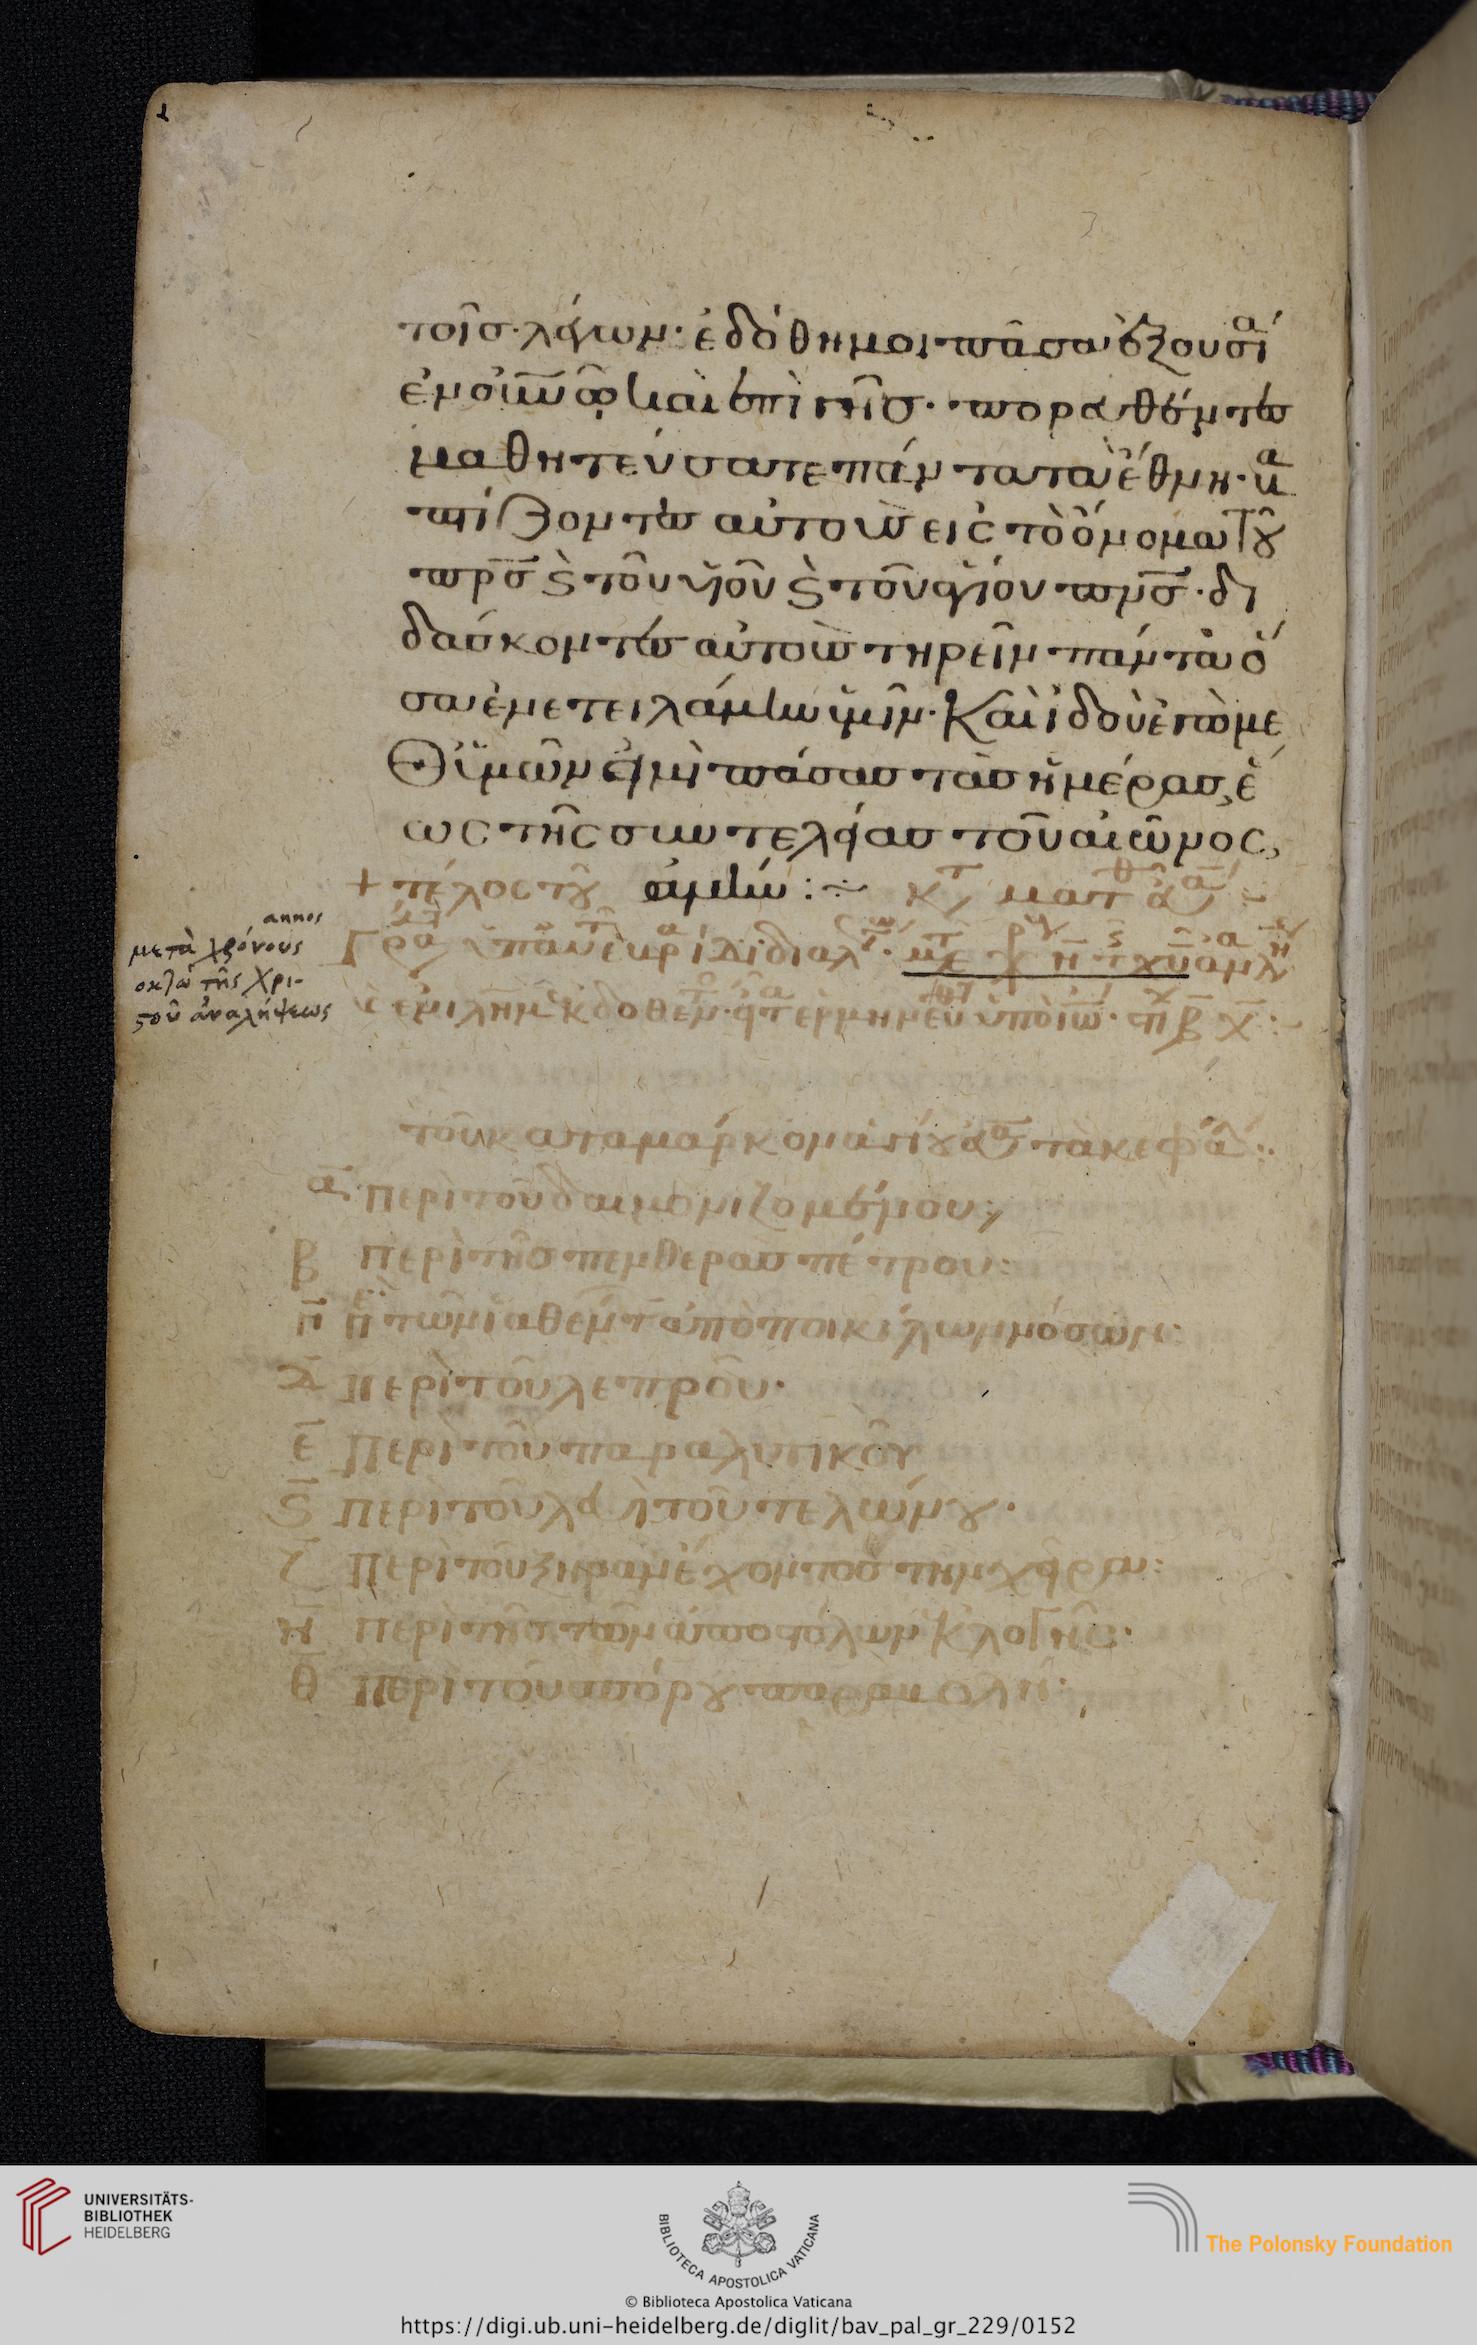 τοῖσ· λέγων· ἐδόθη μοι πᾶσα ἐξουσί
ἐν οὐνῶ καὶ ἐπὶ γῆσ· πορευθέντες
μαθητεύσατε πάντα τὰ ἔθνη· βα
πτίζοντες αὐτοὺς εἰς τὸ ὄνομα τοῦ
πρσ καὶ τοῦ υἱοῦ καὶ τοῦ ἁγίου πνσ· δι
δάσκοντες αὐτοὺς τηρεῖν πάντα ὅ
σα ἐνετειλάμην ὑμῖν· Καὶ ἰδοὺ ἐγὼ με
θ ὑμῶν εἰμὶ πάσασ τὰσ ἡμέρας, ἕ
ως τῆς συντελείασ τοῦ αἰῶνος,
+ τέλος τοῦ ἀμήν :
annos
μετὰ χρόνους
οκτὼ τῆς Χρι-
στοῦ ἀναλήψεως
τοῦ κατα μάρκον τὰ κεφά
α περὶ τοῦ δαιμονιζομένου
β περὶ τῆσ πενθερᾶσ πέτρου:
τῶν ἰαθέντ ἀπὸ ποικίλων νόσων:
δ περὶ τοῦ λεπροῦ·
ε περὶ τοῦ παραλυτικοῦ
ς περὶ τοῦ λευὶ τοῦ τελώνου·
ζ περὶ τοῦ ξηρὰν ἔχοντοσ τὴν χεῖραν:
η περὶ τῆσ τῶν ἀποστόλων ἐκλογῆς·
θ περὶ τοῦ σπόρου παραβολή:
UNIVERSITÄTS-
BIBLIOTHEK
HEIDELBERG
BIBLIOTECA APOSTOLICA VATICANA
The Polonsky Foundation
© Biblioteca Apostolica Vaticana
https://digi.ub.uni-heidelberg.de/diglit/bav_pal_gr_229/0152